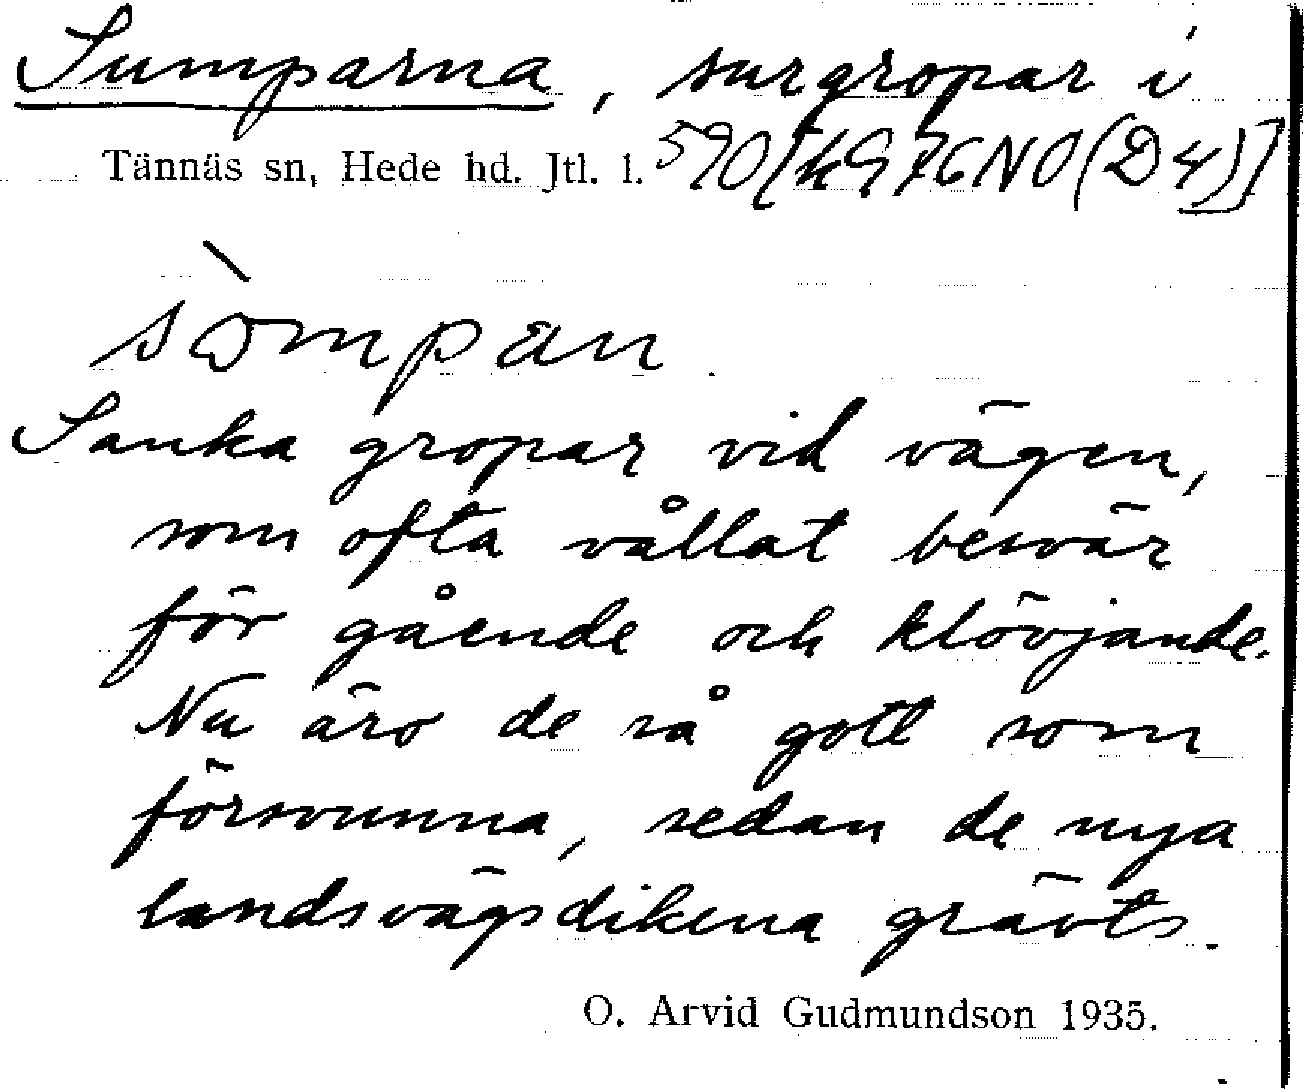 Sumparna, surgropar i
Tännäs sn, Hede hd. Jtl. l. 590 [K976NO(D4)]
sòmpan.
Sanka gropar vid vägen,
som ofta vållat besvär
för gående och klövjande.
Nu äro de så gott som
försvunna, sedan de nya
landsvägsdikena grävts.
O. Arvid Gudmundson 1935.